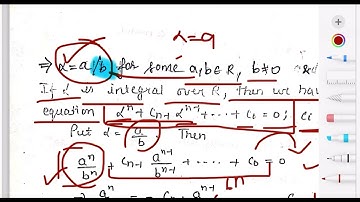 α=a
⇒ α=a/b for some a,b∈R, b≠0
If α is integral over R, then we hav
equation αⁿ + Cₙ₋₁ αⁿ⁻¹ + ..... + C₀ = 0;
Put α = a/b Then
aⁿ/bⁿ + Cₙ₋₁ aⁿ⁻¹/bⁿ⁻¹ + ..... + C₀ = 0
bⁿ